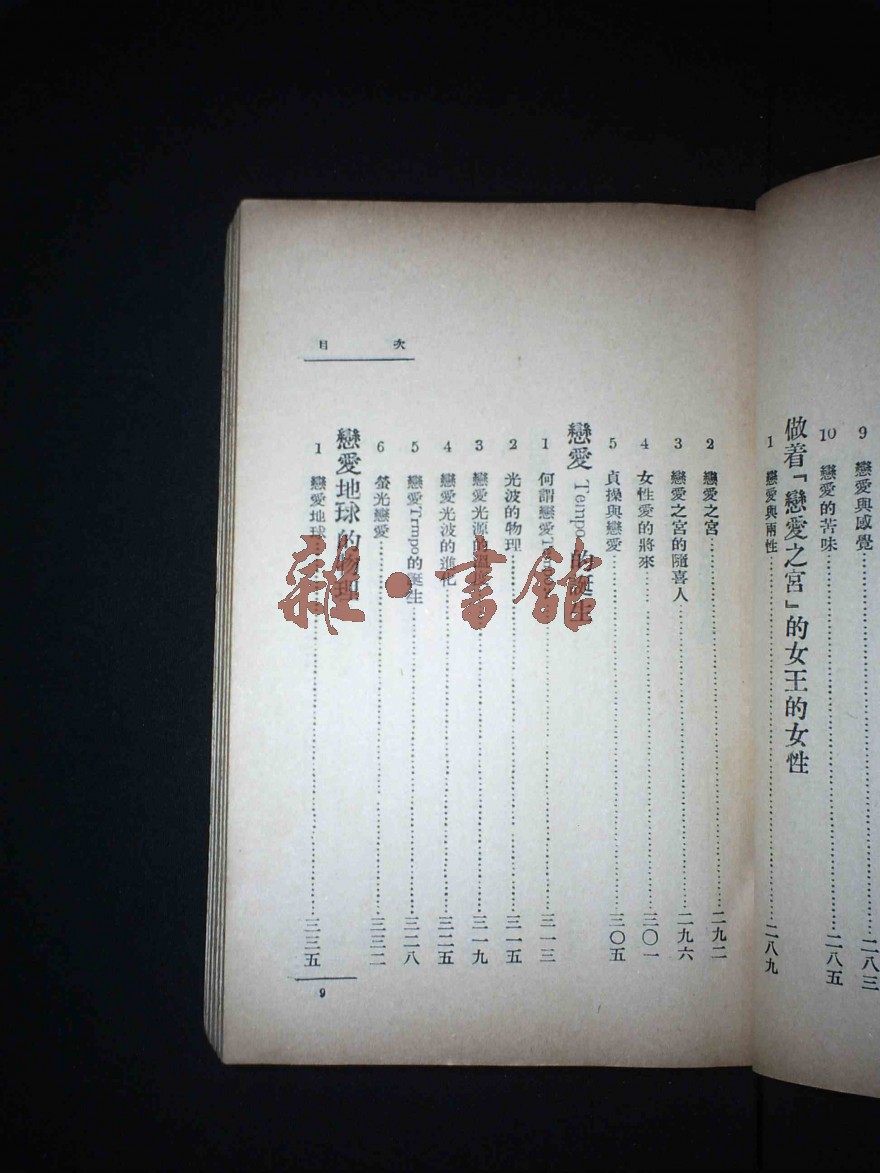 9 戀愛與感覺……二八三
10 戀愛的苦味……二八五
做着「戀愛之宮」的女王的女性
1 戀愛與兩性……二八九
目 次
2 戀愛之宮……二九二
3 戀愛之宮的隨喜人……二九六
4 女性愛的將來……三〇一
5 貞操與戀愛……三〇五
戀愛 Tempo 的誕生
1 何謂戀愛Tempo……三一三
2 光波的物理……三一五
3 戀愛光源的溫度……三一九
4 戀愛光波的進化……三二五
5 戀愛Trmpo的誕生……三二八
6 螢光戀愛……三三二
戀愛地球的物理
1 戀愛地球……三三五
9
雜·書館